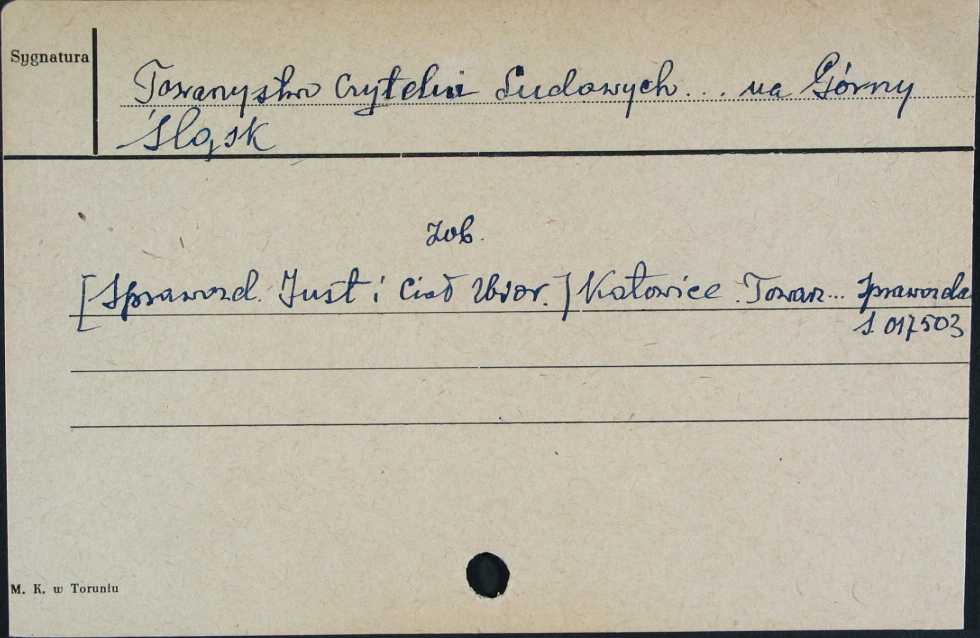 Sygnatura
Towarzystwo Czytelni Ludowych... na Górny
Śląsk
Zob.
[Sprawozd. Inst i Ciał Zbior.] Katowice. Towarz... Sprawozda
S. 017503
M. K. w Toruniu